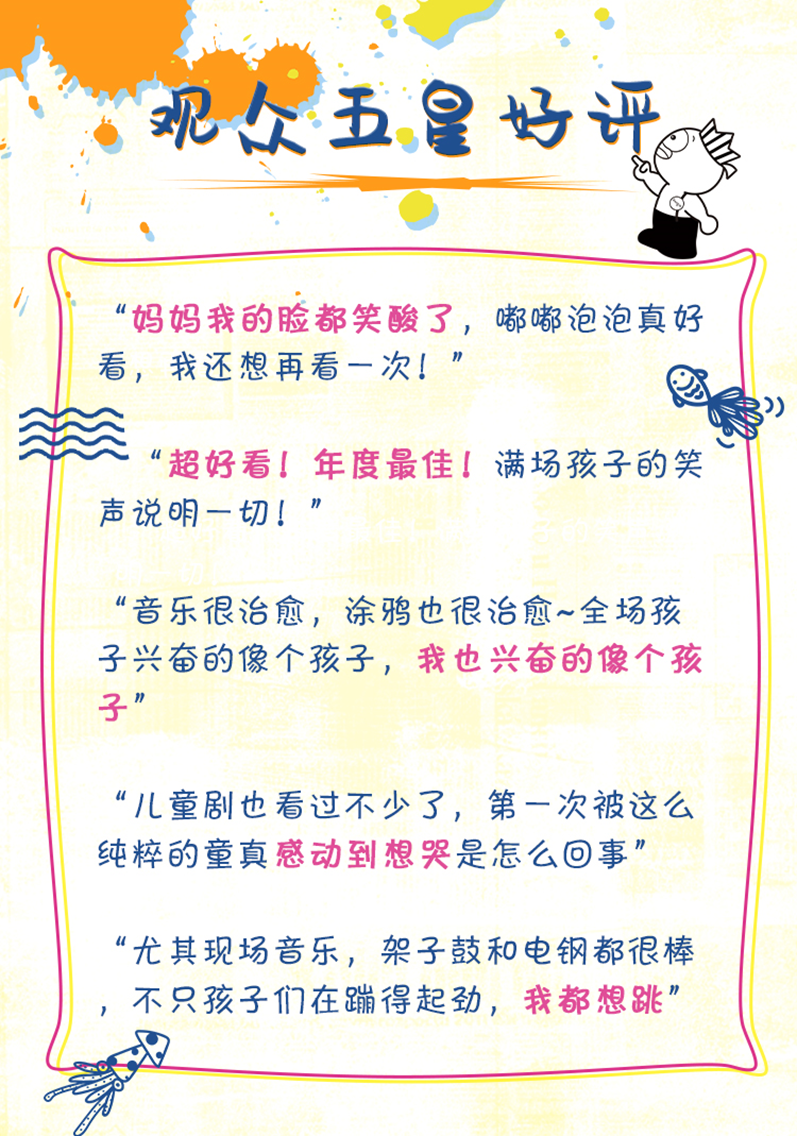 观众五星好评
“妈妈我的脸都笑酸了，嘟嘟泡泡真好
看，我还想再看一次！”
“超好看！年度最佳！满场孩子的笑
声说明一切！”
“音乐很治愈，涂鸦也很治愈~全场孩
子兴奋的像个孩子，我也兴奋的像个孩
子”
“儿童剧也看过不少了，第一次被这么
纯粹的童真感动到想哭是怎么回事”
“尤其现场音乐，架子鼓和电钢都很棒
，不只孩子们在蹦得起劲，我都想跳”